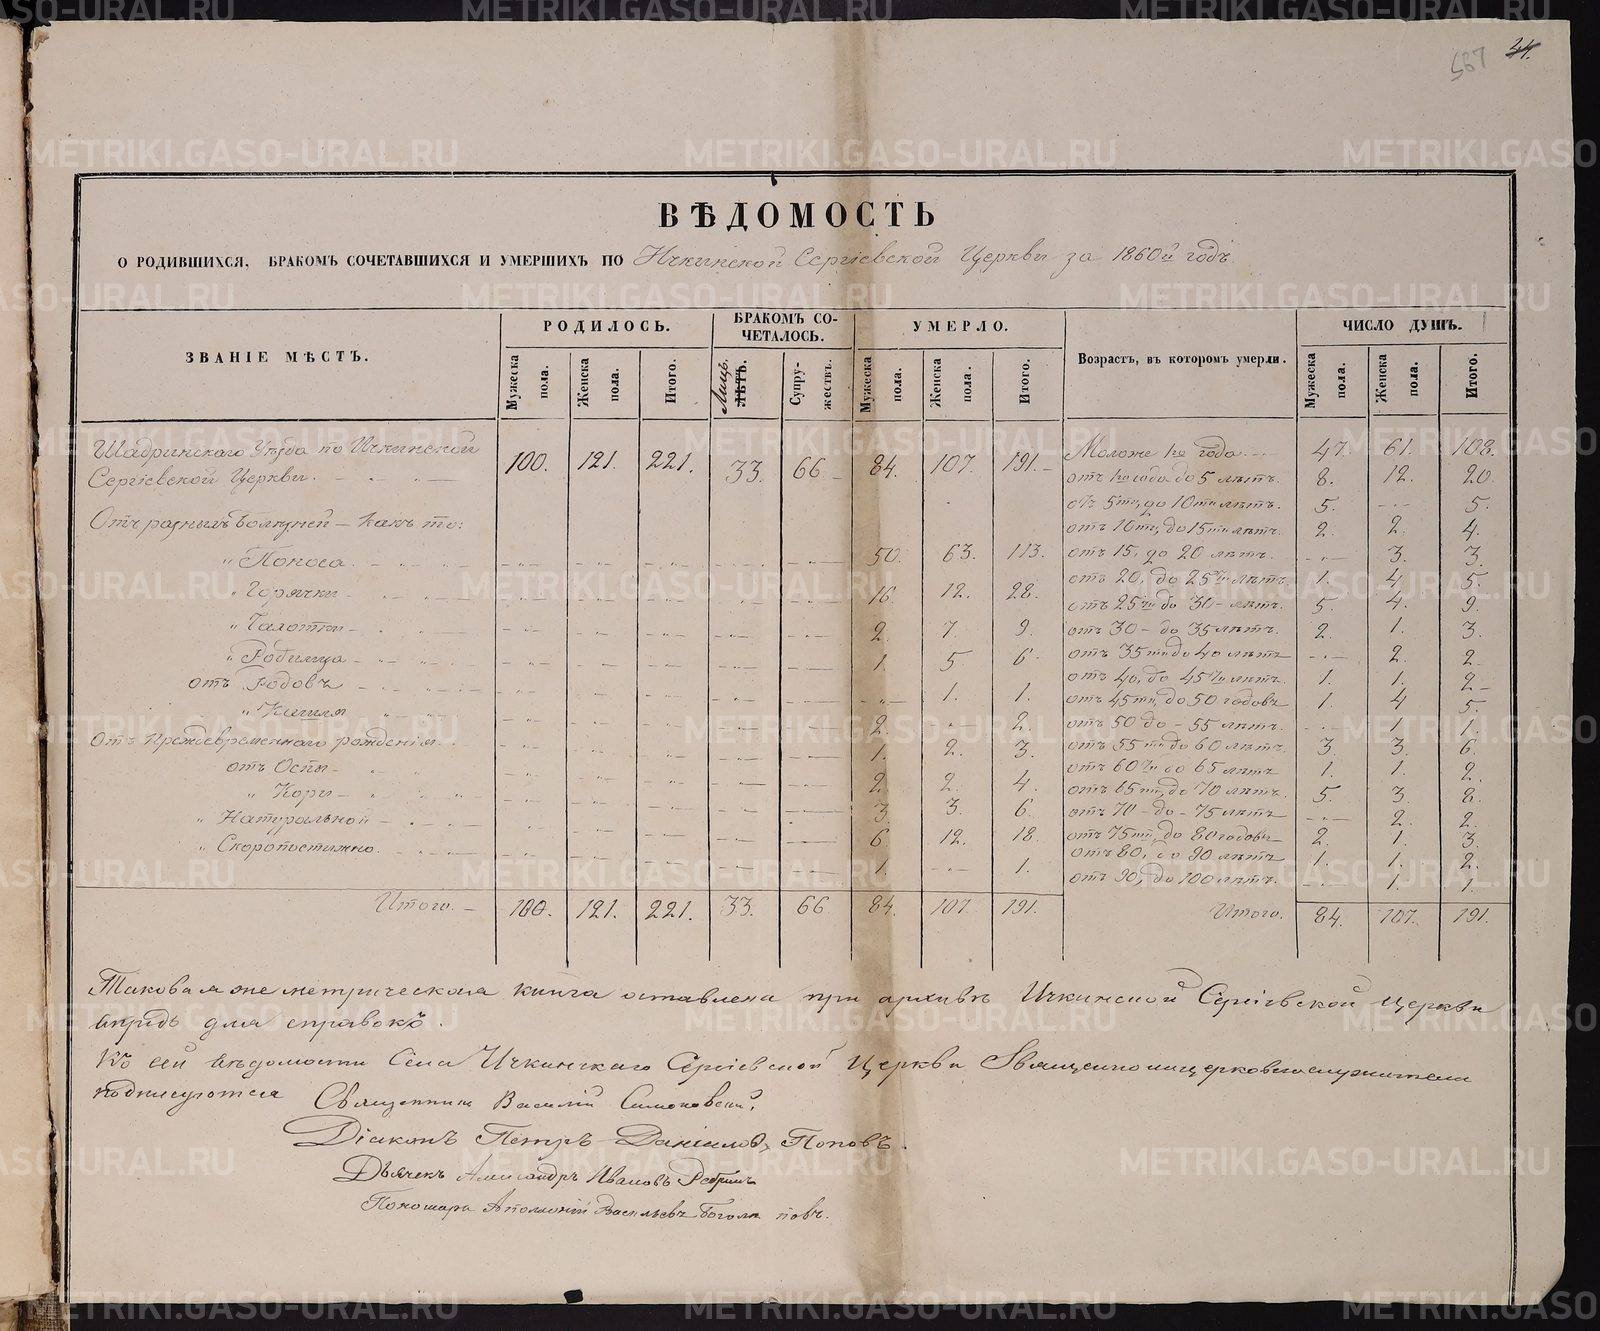 587 34.
ВѢДОМОСТЬ
О РОДИВШИХСЯ, БРАКОМЪ СОЧЕТАВШИХСЯ И УМЕРШИХЪ ПО Ичкинской Сергіевской Церкви за 1860й годъ.
ЗВАНІЕ МѢСТЪ. РОДИЛОСЬ. БРАКОМЪ СОЧЕТАЛОСЬ. УМЕРЛО. Возрастъ, въ котором умерли. ЧИСЛО ДУШЪ.
Мужеска пола. Женска пола. Итого. Лицъ. ЛѢТЪ. Супружествъ. Мужеска пола. Женска пола. Итого. Мужеска пола. Женска пола. Итого.
Шадринскаго Уѣзда по Ичкинской Моложе 1го года 47. 61. 108.
Сергіевской Церкви. 100. 121. 221. 33. 66 84. 107. 191. отъ 1го года до 5 лѣтъ. 8. 12. 20.
отъ 5ти, до 10ти лѣтъ. 5. 5.
Отъ разныхъ болѣзней – какъ то: отъ 10ти, до 15ти лѣтъ. 2. 2. 4.
„ Поноса. 50. 63. 113. отъ 15, до 20 лѣтъ. 3. 3.
„ Горячки 16. 12. 28. отъ 20, до 25ти лѣтъ. 1. 4. 5.
отъ 25ти до 30 лѣтъ. 5. 4. 9.
„ 2. 7. 9. отъ 30 до 35 лѣтъ. 2. 1. 3.
„ Родимца 1. 5. 6. отъ 35ти до 40 лѣтъ 2. 2.
отъ Родовъ 1. 1. отъ 40, до 45ти лѣтъ. 1. 1. 2
отъ 45ти, до 50 годовъ 1. 4 5.
„ Кашля 2. 2. отъ 50 до 55 лѣтъ. 1. 1.
Отъ Преждевременного рожденія. 1. 2. 3. отъ 55ти до 60 лѣтъ. 3 3. 6.
отъ Оспы 2. 2. 4. отъ 60ти до 65 лѣтъ 1. 1. 2.
„ Кори 3. 3. 6. отъ 65ти, до 70 лѣтъ. 5. 3. 8.
отъ 70 до 75 лѣтъ 2. 2.
„ Натуральной 6 12. 18. отъ 75ти, до 80 годовъ 2. 1. 3.
„ Скоропостижно. 1. 1. отъ 80, до 90 лѣтъ 1. 1. 2.
отъ 90, до 100 лѣтъ. 1. 1.
Итого. 100. 121. 221. 33. 66 84. 107. 191. Итого. 84. 107. 191.
Таковая же метрическая книга оставлена при архивѣ Ичкинской Сергіевской Церкви
впредь для справокъ.
Къ сей вѣдомости Села Ичкинскаго Сергіевской Церкви Священно и церковнослужители
подписуются Священник Василій
Діаконъ Петръ Даніиловъ Поповъ.
Дьячекъ Александръ Ивановъ
Пономарь Аполлоній Васильевъ
METRIKI.GASO-URAL.RU